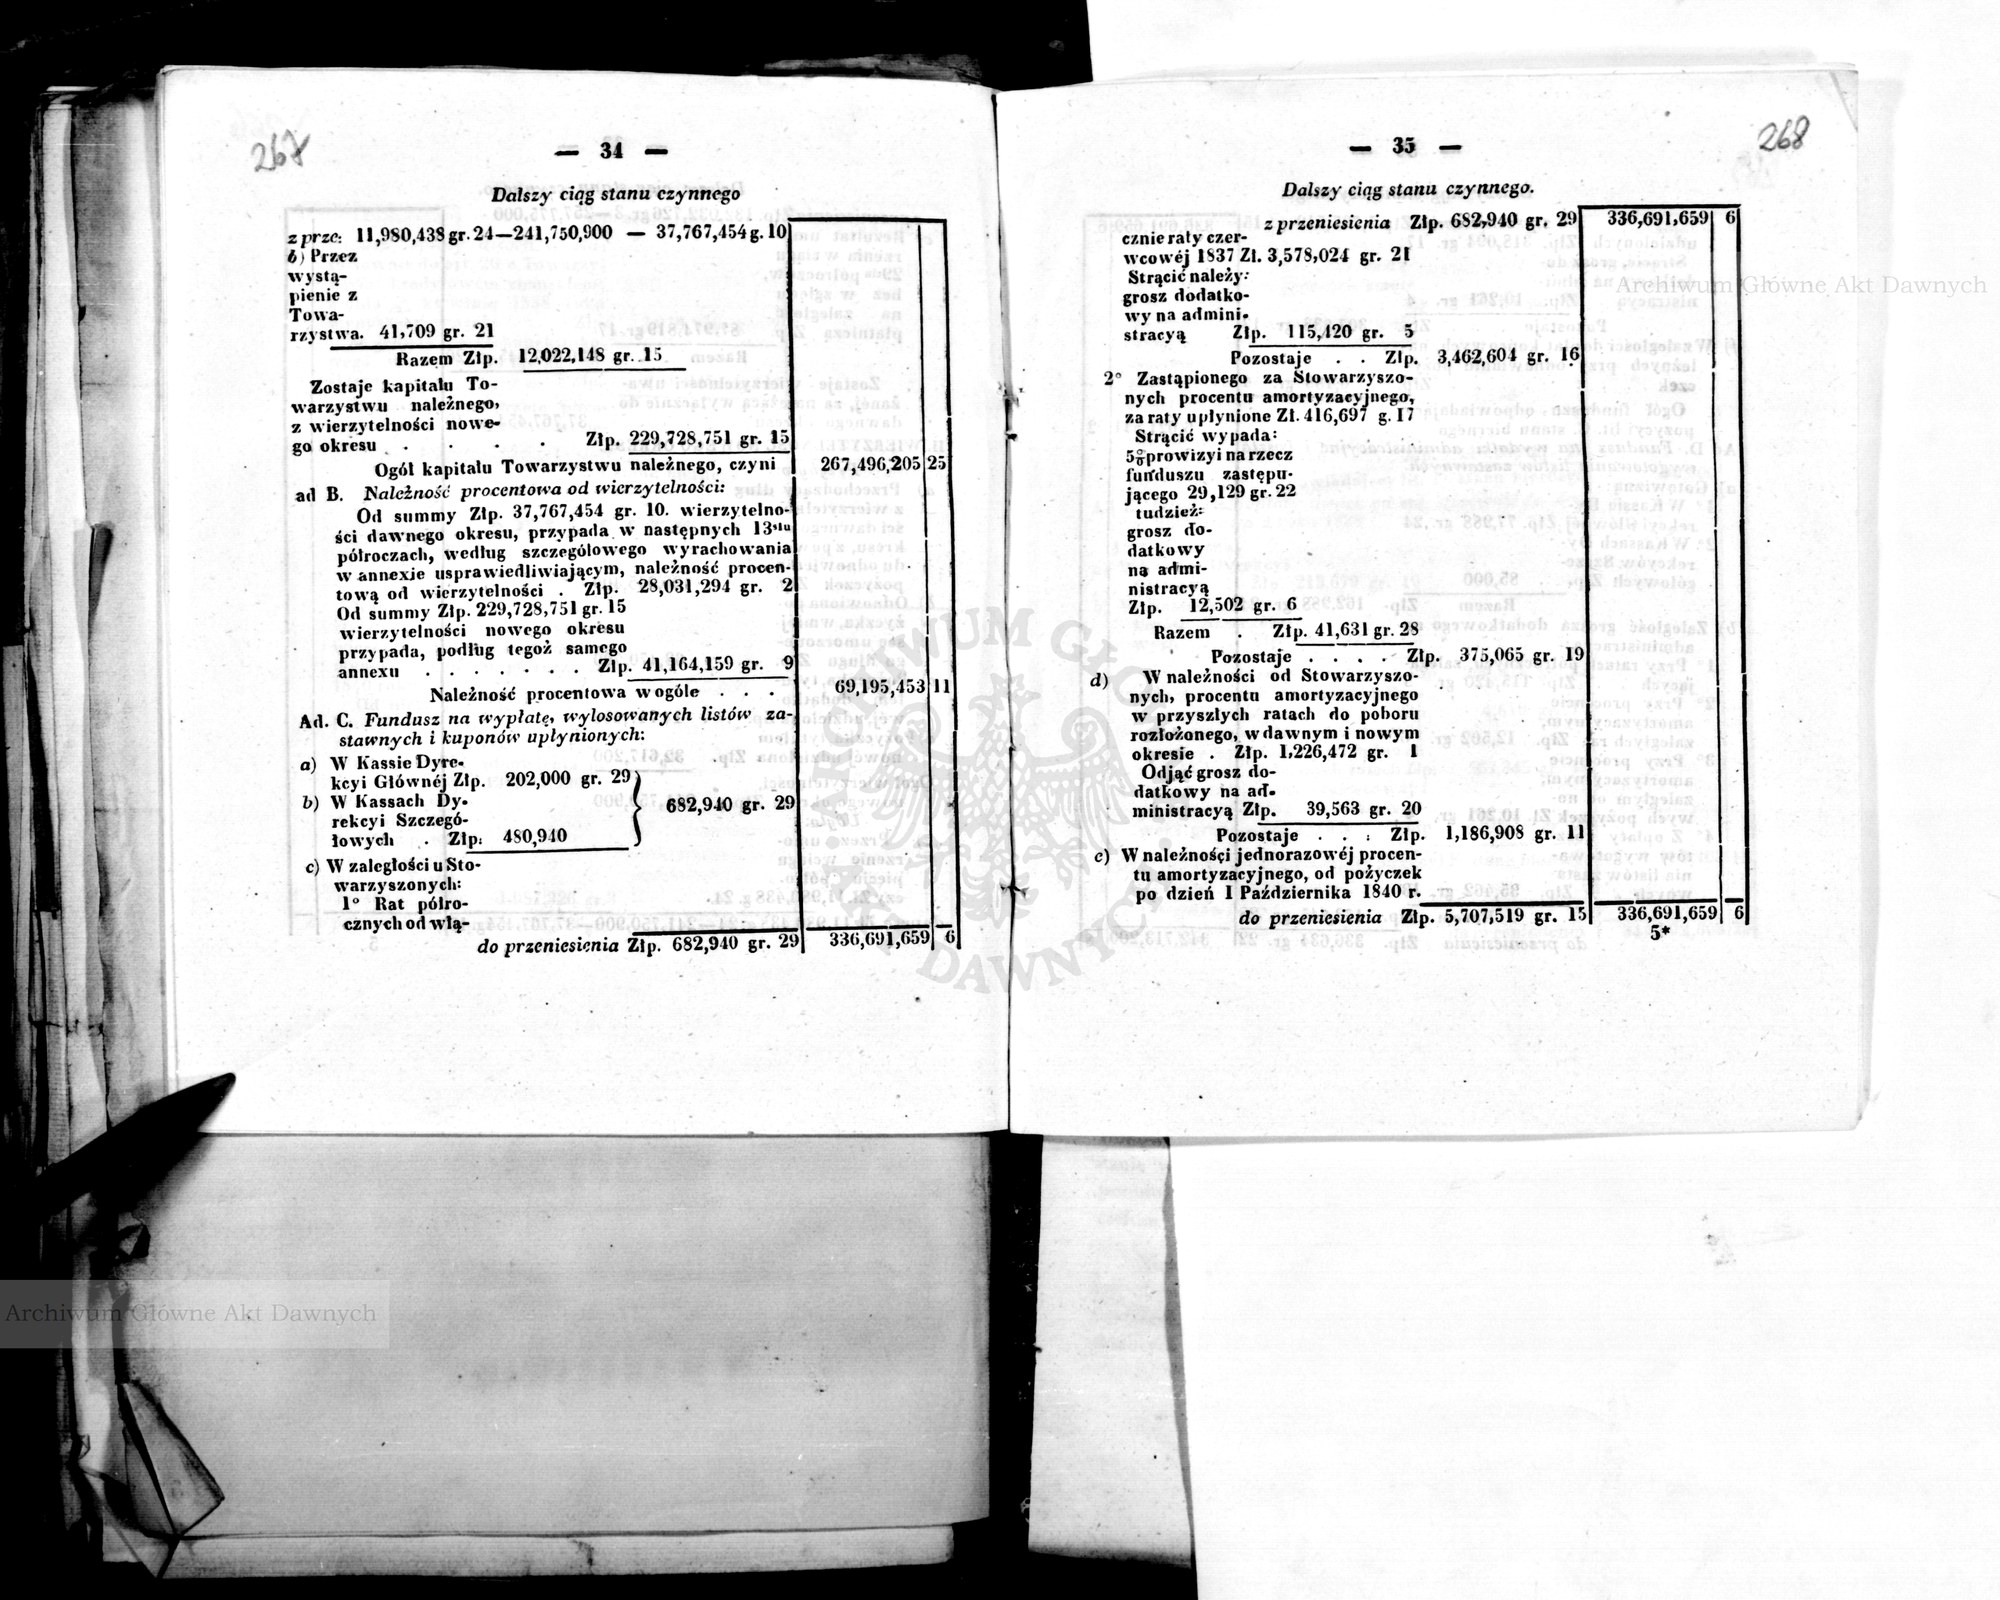 267
— 34 —
Dalszy ciąg stanu czynnego
z prze: 11,980,438 gr. 24—241,750,900 — 37,767,454 g. 10
b) Przez
wystą-
pienie z
Towa-
rzystwa. 41,709 gr. 21
Razem Złp. 12,022,148 gr. 15
Zostaje kapitału To-
warzystwu należnego,
z wierzytelności nowe-
go okresu . . . . Złp. 229,728,751 gr. 15
Ogół kapitału Towarzystwu należnego, czyni 267,496,205 25
ad B. Należność procentowa od wierzytelności:
Od summy Złp. 37,767,454 gr. 10. wierzytelno-
ści dawnego okresu, przypada w następnych 13stu
półroczach, według szczegółowego wyrachowania
w annexie usprawiedliwiającym, należność procen-
tową od wierzytelności . Złp. 28,031,294 gr. 2
Od summy Złp. 229,728,751 gr. 15
wierzytelności nowego okresu
przypada, podług tegoż samego
annexu . . . . . . . Złp. 41,164,159 gr. 9
Należność procentowa w ogóle . . . 69,195,453 11
Ad. C. Fundusz na wypłatę, wylosowanych listów za-
stawnych i kuponów upłynionych:
a) W Kassie Dyre-
kcyi Głównéj Złp. 202,000 gr. 29
b) W Kassach Dy- 682,940 gr. 29
rekcyi Szczegó-
łowych . Złp: 480,940
c) W zaległości u Sto-
warzyszonych:
1° Rat półro-
cznych od włą-
do przeniesienia Złp. 682,940 gr. 29 336,691,659 6
268
— 35 —
Dalszy ciąg stanu czynnego.
z przeniesienia Złp. 682,940 gr. 29 336,691,659 6
cznie raty czer-
wcowéj 1837 Zł. 3,578,024 gr. 21
Strącić należy:
grosz dodatko-
wy na admini-
stracyą Złp. 115,420 gr. 5
Pozostaje . . Złp. 3,462,604 gr. 16
2° Zastąpionego za Stowarzyszo-
nych procentu amortyzacyjnego,
za raty upłynione Zł. 416,697 g. 17
Strącić wypada:
5% prowizyi na rzecz
funduszu zastępu-
jącego 29,129 gr. 22
tudzież:
grosz do-
datkowy
na admi-
nistracyą
Złp. 12,502 gr. 6
Razem . Złp. 41,631 gr. 28
Pozostaje . . . . Złp. 375,065 gr. 19
d) W należności od Stowarzyszo-
nych, procentu amortyzacyjnego
w przyszłych ratach do poboru
rozłożonego, w dawnym i nowym
okresie . Złp. 1,226,472 gr. 1
Odjąć grosz do-
datkowy na ad-
ministracyą Złp. 39,563 gr. 20
Pozostaje . . . Złp. 1,186,908 gr. 11
e) W należności jednorazowéj procen-
tu amortyzacyjnego, od pożyczek
po dzień 1 Października 1840 r.
do przeniesienia Złp. 5,707,519 gr. 15 336,691,659 6
5*
Archiwum Główne Akt Dawnych
Archiwum Główne Akt Dawnych
ARCHIWUM GŁÓWNE AKT DAWNYCH